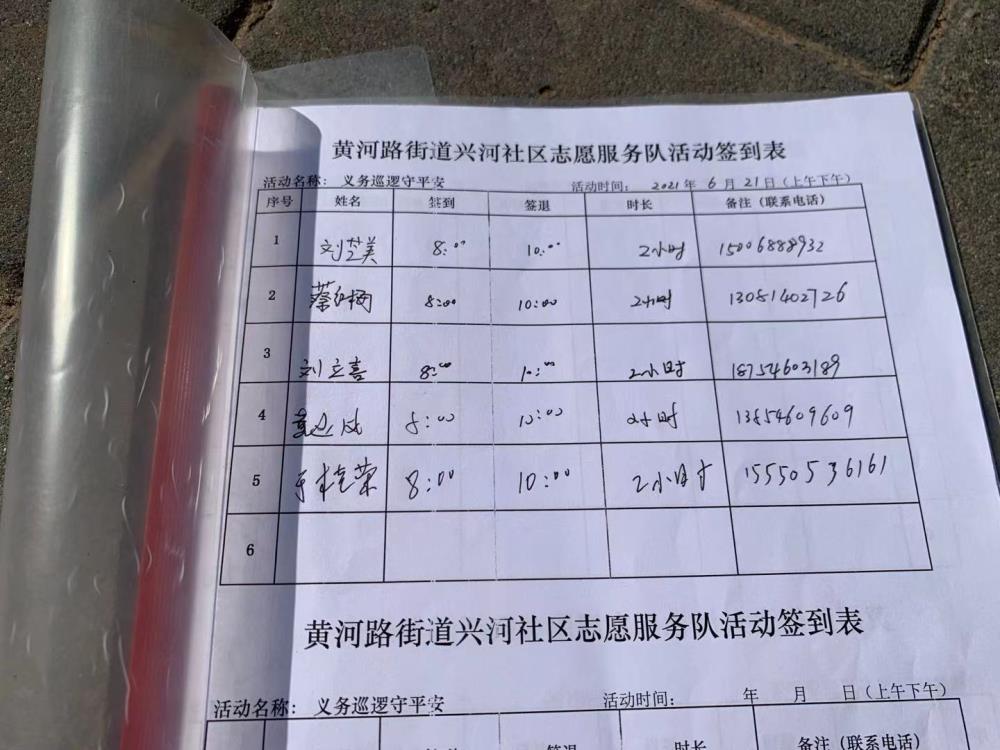 黄河路街道兴河社区志愿服务队活动签到表
活动名称: 义务巡逻守平安 活动时间: 2021年 6月21日(上午下午)
序号 姓名 签到 签退 时长 备注(联系电话)
1 刘芝美 8:00 10:00 2小时 15006888932
2 蔡 8:00 10:00 2小时 13081402726
3 刘立喜 8:00 10:00 2小时 18754603189
4 8:00 10:00 2小时 13854609609
5 荣 8:00 10:00 2小时 15550536161
6
黄河路街道兴河社区志愿服务队活动签到表
活动名称: 义务巡逻守平安 活动时间: 年 月 日(上午下午)
签退 时长 备注(联系电话)